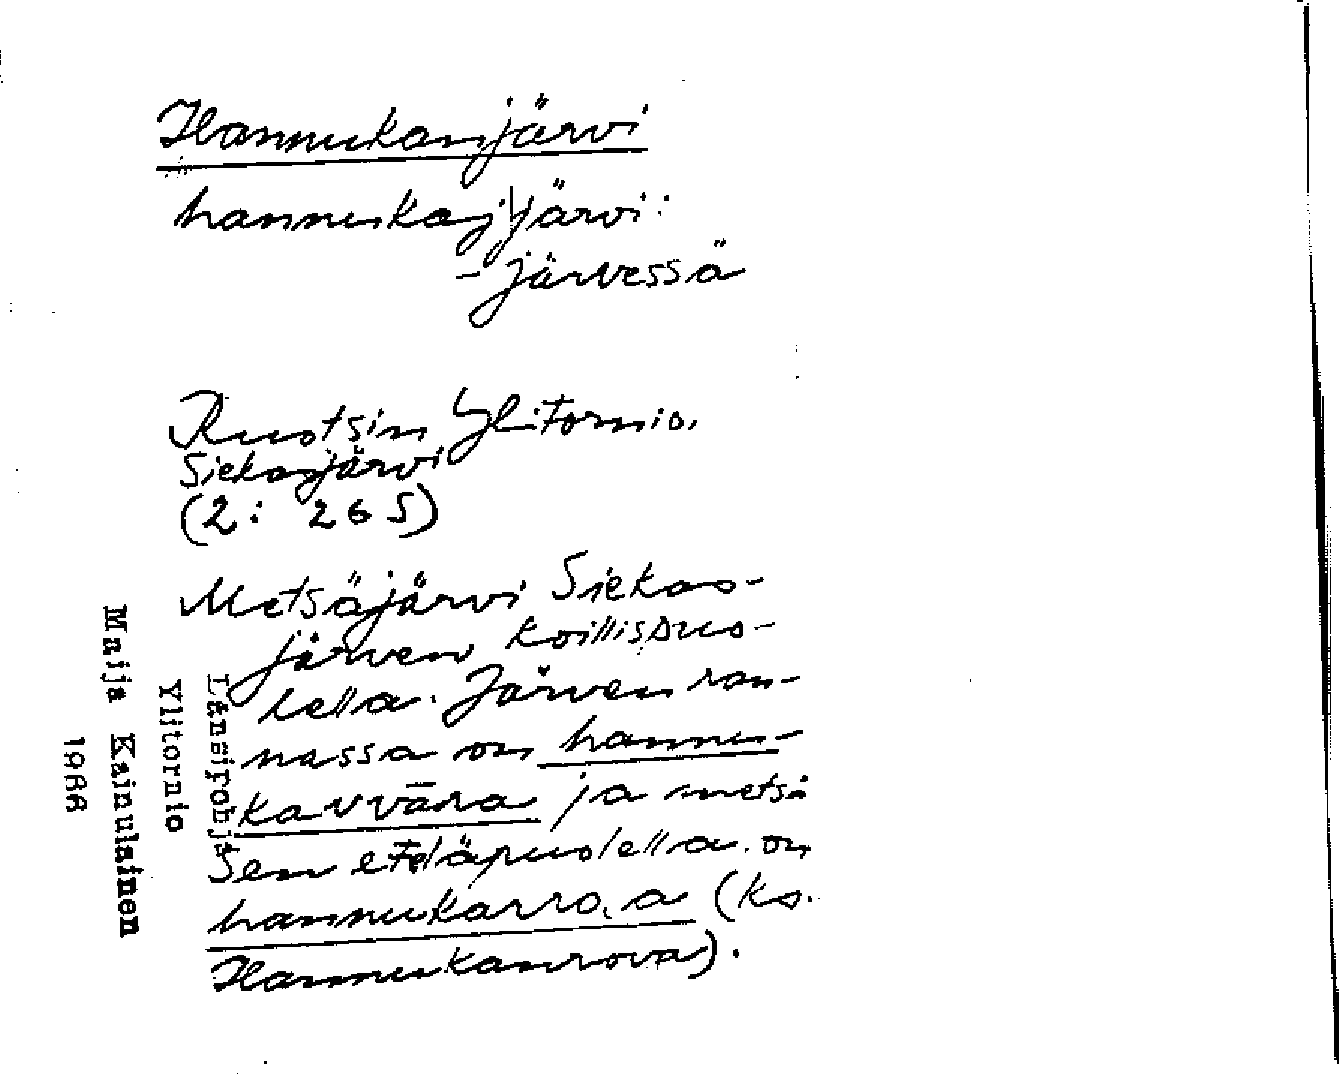 Hannukanjärvi
hannukaj|järvi:
- järvessä
Ruotsin Ylitornio.
Siekasjärvi
(2: 265)
Metsäjärvi Siekas-
järven koillispuo-
lella. Järven ran-
nassa on hannu-
kavvāra ja metsä
Sen eteläpuolella on
hannukarrova (ks.
Hannukanrova).
Länsipohja
Ylitornio
Maija Kainulainen
1988